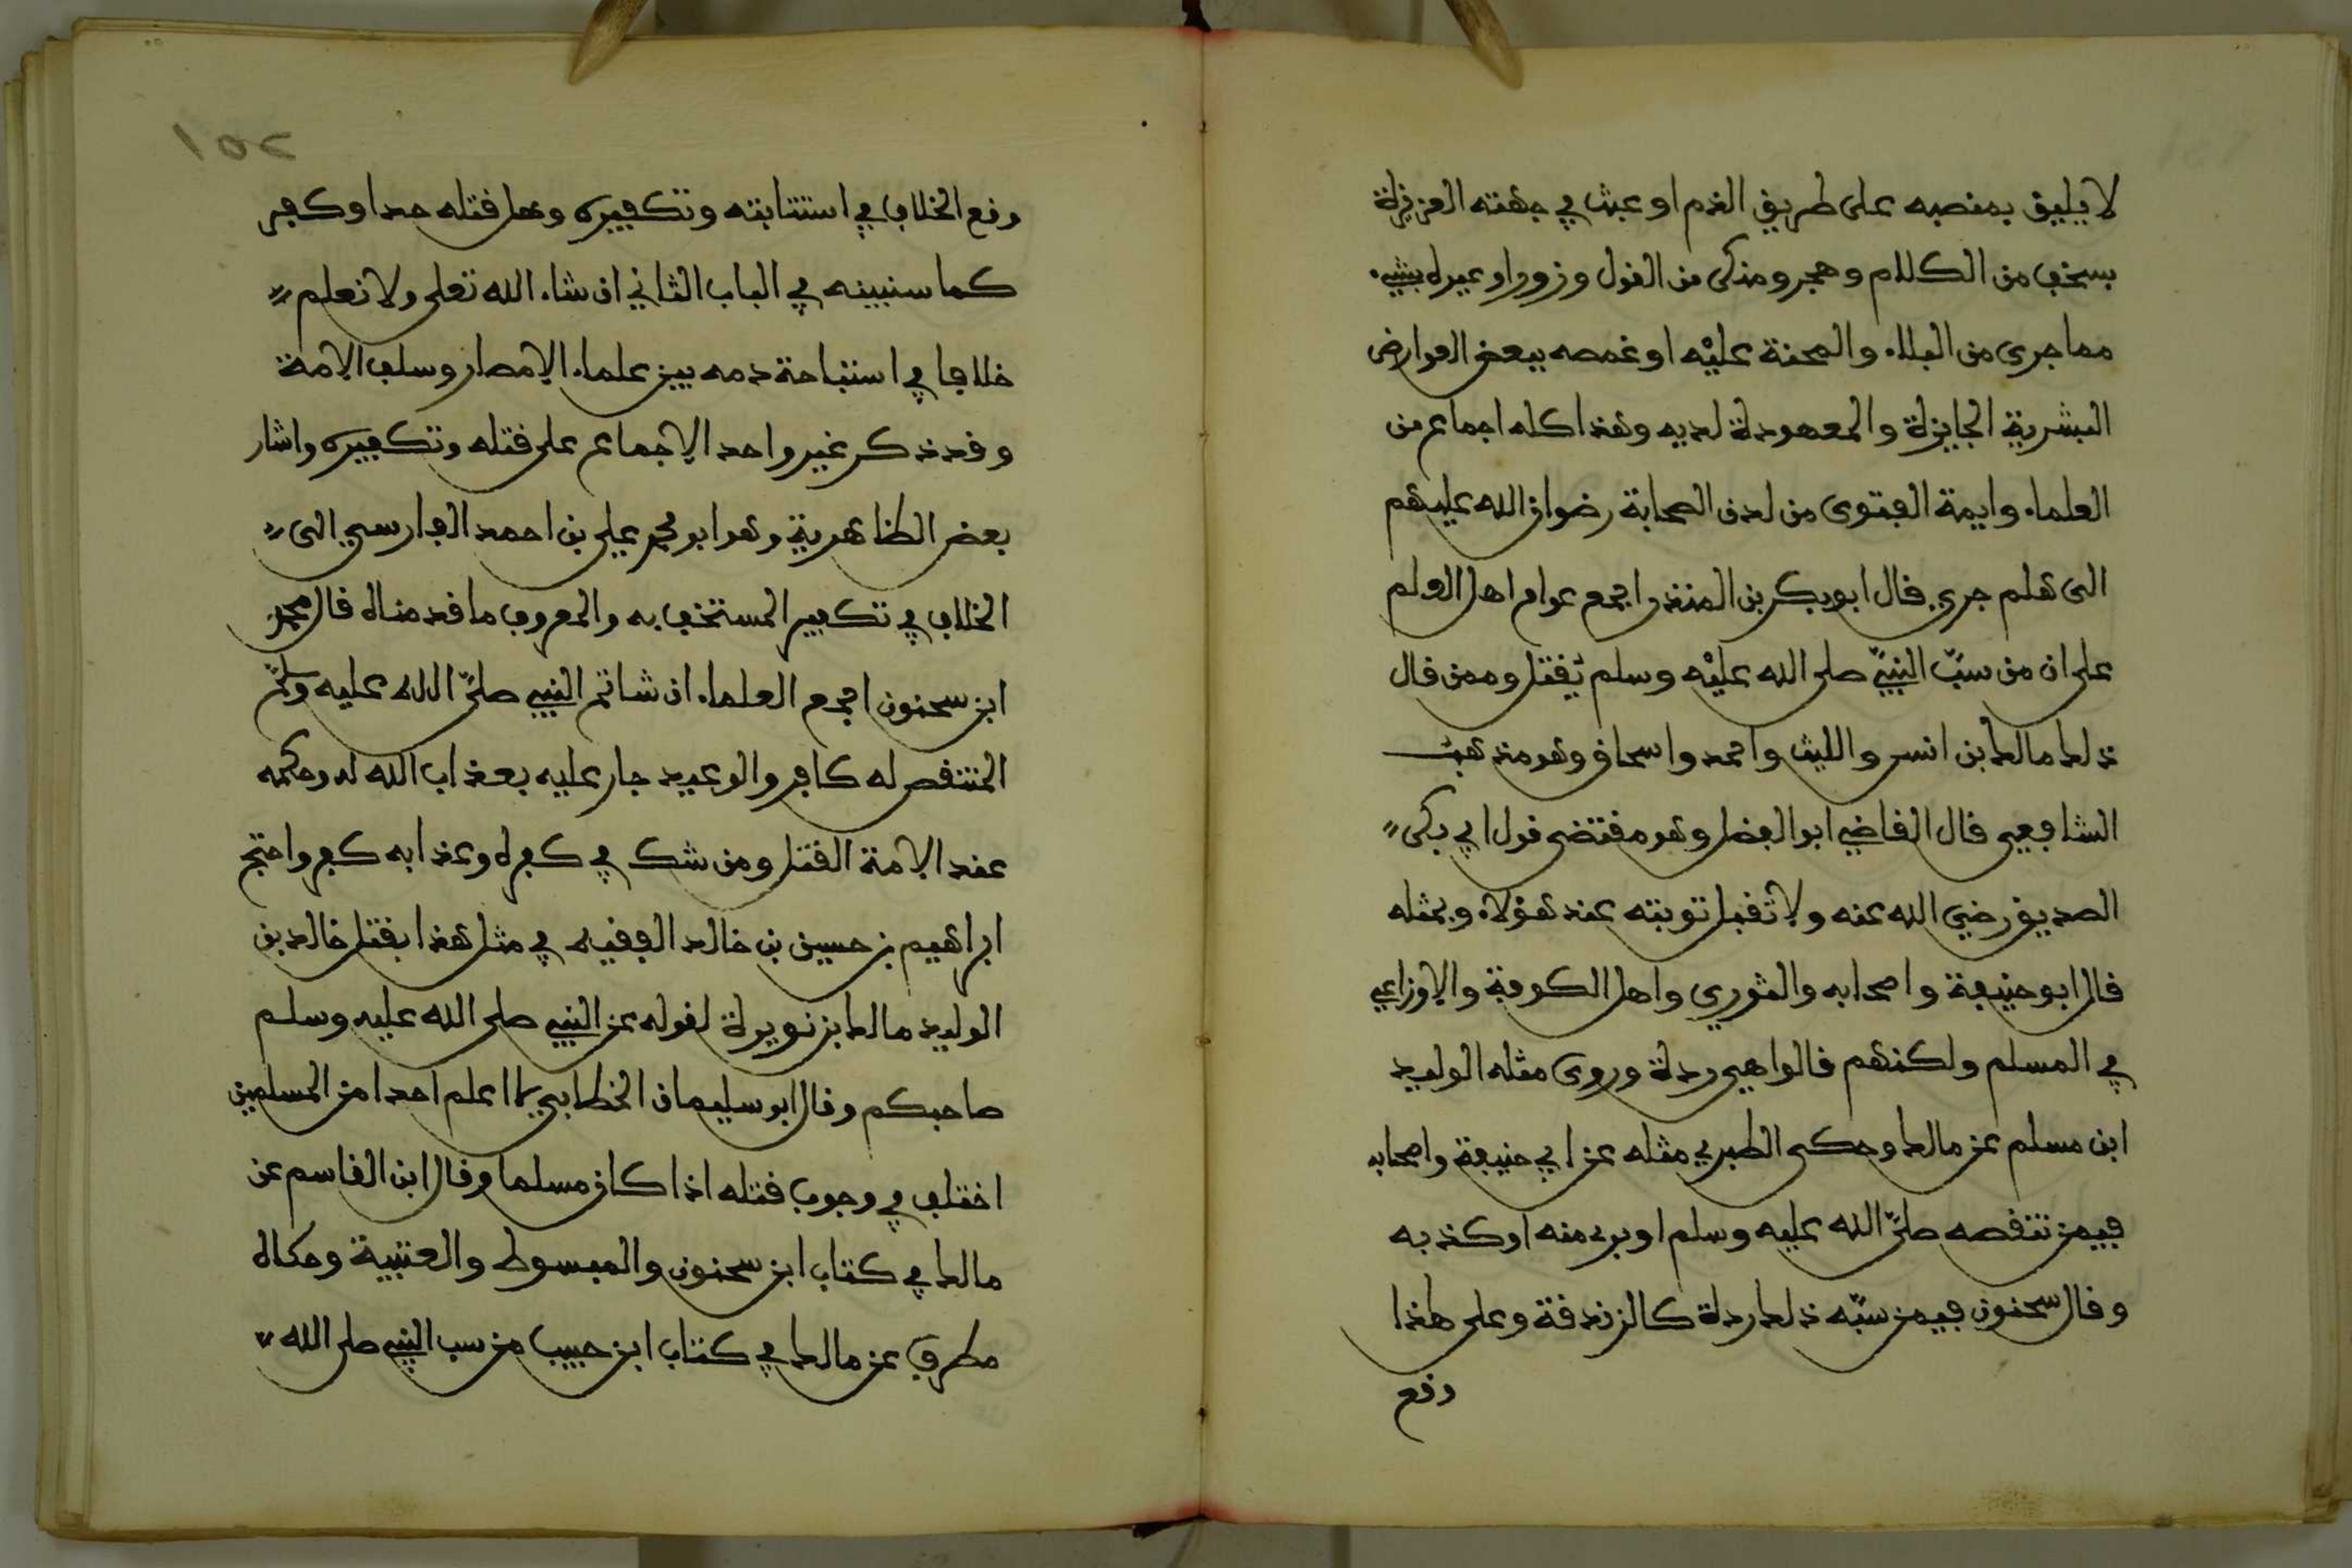 لا يليق بمنصبه على طريق الذم او عبث في جهته العزيزة
بسخف من الكلام وهجر ومنكر من القول وزور او عيره بشيء
مما جرى من البلاء والمحنة عليه او غمصه ببعض العوارض
البشرية الجايزة والمعهودة لديه وهذا كله اجماع من
العلماء وايمة الفتوى من لدن الصحابة رضوان الله عليهم
الى هلم جرى قال ابو بكر بن المنذر اجمع عوام اهل العلم
على ان من سبّ النبيّ صلى الله عليه وسلم يُقتل وممن قال
ذلك مالك بن انس والليث واحمد واسحاق وهو مذهب
الشافعي قال القاضي ابو الفضل وهو مقتضى قول ابي بكر
الصديق رضي الله عنه ولا تقبل توبته عند هؤلاء وبمثله
قال ابو حنيفة واصحابه والثوري واهل الكوفة والاوزاعي
في المسلم ولكنهم قالوا هي ردة وروى مثله الوليد
ابن مسلم عن مالك وحكى الطبري مثله عن ابي حنيفة واصحابه
فيمن تنقصه صلىّ الله عليه وسلم او برء منه او كذبه
وقال سحنون فيمن سبّه ذلك ردة كالزندقة وعلى هذا
وقع
١٥٢
وقع الخلاف في استتابته وتكفيره وهل قتله حد او كفر
كما سنبينه في الباب الثاني ان شاء الله تعلى ولا نعلم
خلافا في استباحة دمه بين علماء الامصار وسلف الامة
وقد ذكر غير واحد الاجماع على قتله وتكفيره واشار
بعض الظاهرية وهو ابو محمد علي بن احمد الفارسي الى
الخلاف في تكفير المستخف به والمعروف ما قدمناه قال محمد
ابن سحنون اجمع العلماء ان شاتم النبي صلىّ الله عليه وسلم
المنتقص له كافر والوعيد جار عليه بعذاب الله له وحكمه
عند الامة القتل ومن شك في كفره وعذابه كفر واحتج
ابراهيم بن حسين بن خالد الفقيه في مثل هذا بقتل خالد بن
الوليد مالك بن نويرة لقوله عن النبي صلى الله عليه وسلم
صاحبكم وقال ابو سليمان الخطابي لا اعلم احدا من المسلمين
اختلف في وجوب قتله اذا كان مسلما وقال ابن القاسم عن
مالك في كتاب ابن سحنون والمبسوط والعتبية وحكاه
مطرف عن مالك في كتاب ابن حبيب من سب النبي صلى الله